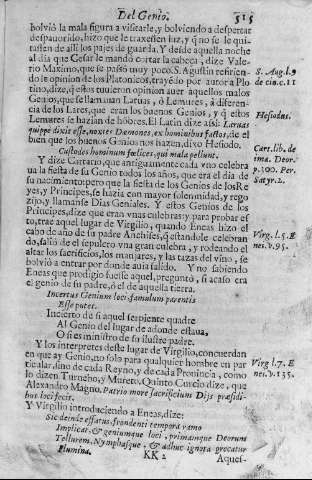 Del Genio. 515
bolviò la mala figura a visitarle, y bolviendo a despertar
despauorido, hizo que le traxessen luz, y q̃ no se le qui-
tassen de alli los pajes de guarda. Y desde aquella noche
al dia que Cesar le mandò cortar la cabeça, dize Vale-
rio Maximo, que se passò muy poco. S. Agustin refirien-
do la opinion de los Platonicos, trayẽdo por autor a Plo
tino, dize, q̃ estos tuuieron opinion auer aquellos malos
Genios, que se llamauan Laruas, ò Lemures, à diferen-
cia de los Lares, que eran los buenos Genios, y q̃ estos
Lemures se hazian de hõbres. El Latin dize assi: Laruas
quippe dixit esse, noxios Dæmones, ex hominibus factos, de el
bien que los buenos Genios nos hazen, dixo Hesiodo.
Custodes hominum fœlices, qui mala pellunt.
Y dize Cartario, que antiguamente cada vno celebra
ua la fiesta de su Genio todos los años, que era el dia de
su nacimiento: pero que la fiesta de los Genios de los Re
yes, y Principes, se hazia con mayor solemnidad, y rego
zijo, y llamanse Dias Geniales. Y estos Genios de los
Principes, dize que eran vnas culebras: y para probar es
to, trae aquel lugar de Virgilio, quando Eneas hizo el
cabo de año de su padre Anchises, q̃ estandole celebran
do, saliò de el sepulcro vna gran culebra, y rodeando el
altar los sacrificios, los manjares, y las tazas del vino, se
bolviò a entrar por donde auia salido. Y no sabiendo
Eneas que prodigio fuesse aquel, preguntò, si acaso era
el genio de su padre, ò el de aquella tierra.
Incertus Genium loci famulum parentis
Esse putet.
Incierto de si aquel serpiente quadre
Al Genio del lugar de adonde estaua,
O si es ministro de su ilustre padre.
Y los interpretes deste lugar de Virgilio, concuerdan
en que ay Genio, no solo para qualquier hombre en par
ticular, sino de cada Reyno, y de cada Prouincia, como
lo dizen Turnebo, y Mureto. Quinto Curcio dize, que
Alexandro Magno, Patrio more sacrificium Dijs præsidi-
bus loci fecit.
Y Virgilio introduciendo a Eneas, dize:
Sic deinde effatus, frondenti tempora ramo
Implicat, & geniumque loci, primamque Deorum
Tellurem, Nymphasque, & adhuc ignota precatur
Flumina.
KK 2 Aques-
S. Aug. l. 9
de ciu. c. 11
Hesiodus.
Cart. lib. de
ima. Deor.
p. 300. Per.
Satyr. 2.
Virg. l. 5. E
nei. v. 95.
Virg. l. 7. E
nei. v. 135.